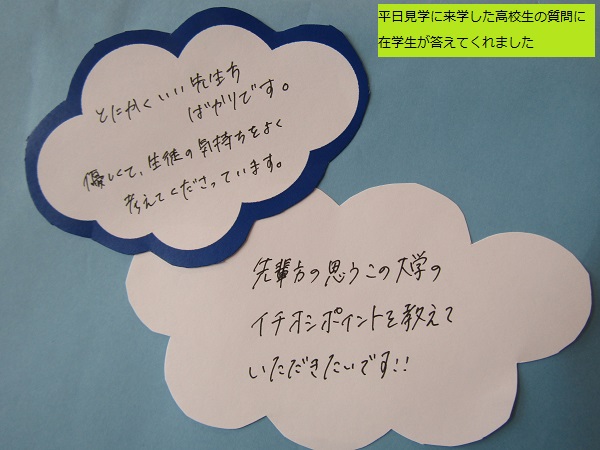 平日見学に来学した高校生の質問に
在学生が答えてくれました
とにかくいい先生ち
ばかりです。
優しくて、生徒の気持ちをよく
考えてくださっています。
先輩方の思うこの大学の
イチオシポイントを教えて
いただきたいです!!